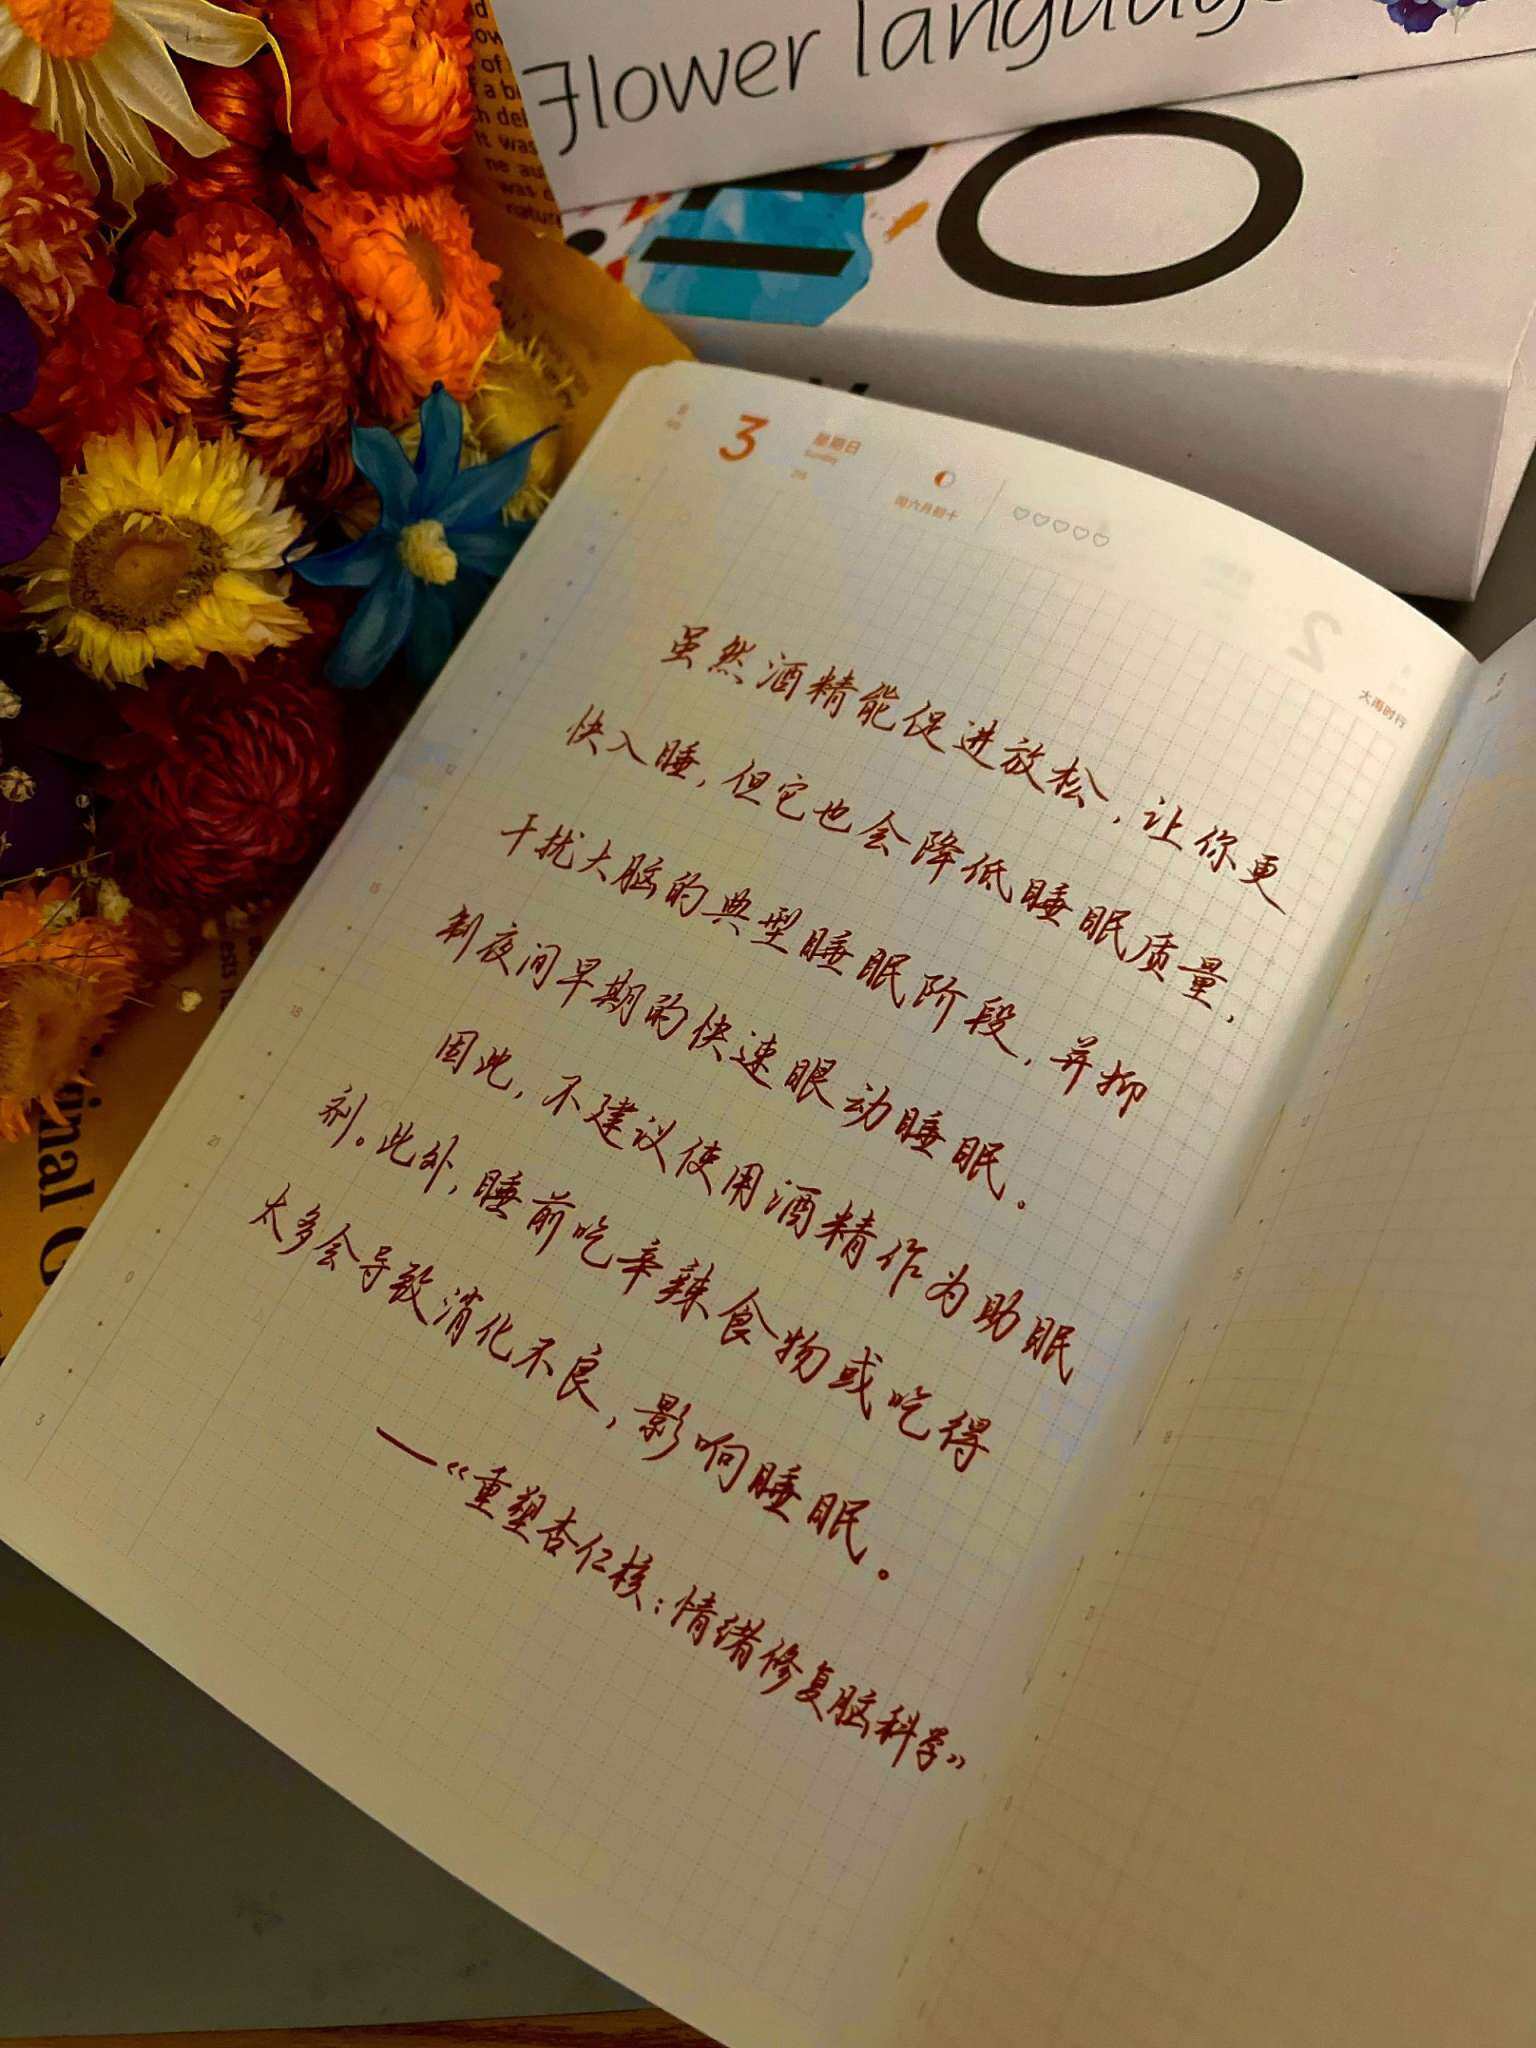 Flower language
3
星期日
Sunday
闰六月初十
2
大雨时行
虽然酒精能促进放松，让你更
快入睡，但它也会降低睡眠质量，
干扰大脑的典型睡眠阶段，并抑
制夜间早期的快速眼动睡眠。
因此，不建议使用酒精作为助眠
剂。此外，睡前吃辛辣食物或吃得
太多会导致消化不良，影响睡眠。
—《重塑杏仁核：情绪修复脑科学》
12
15
18
21
0
3